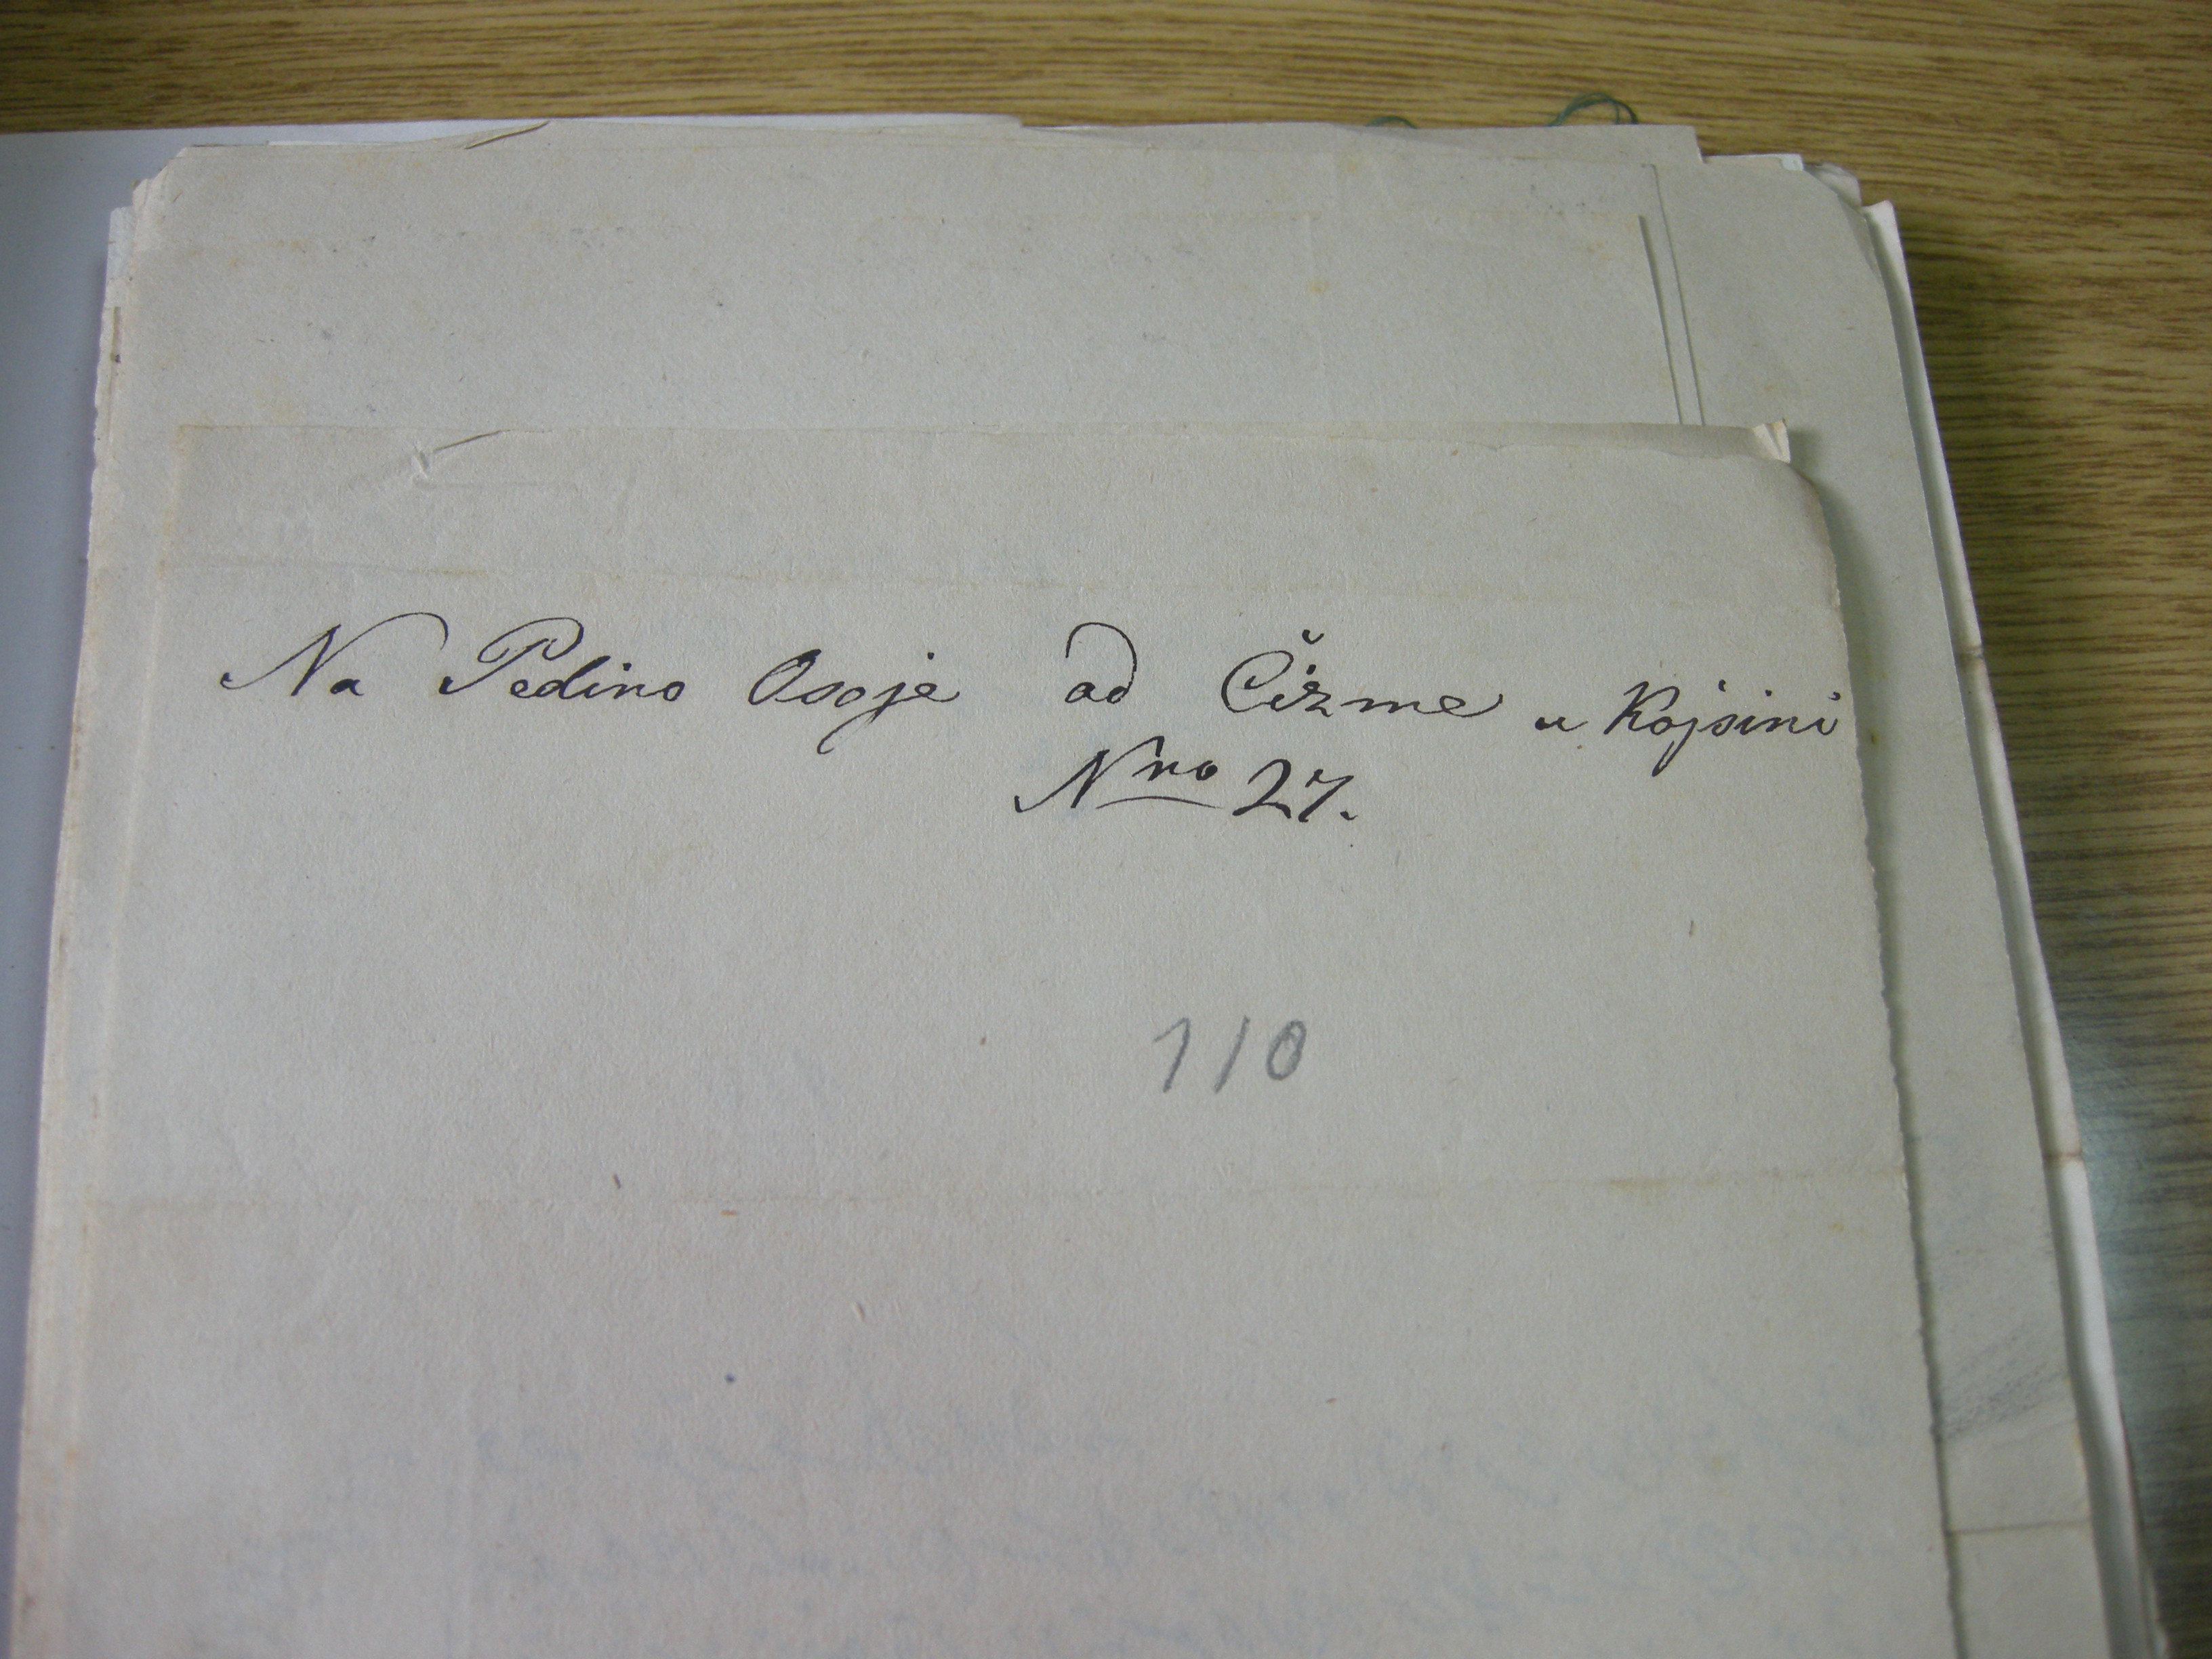 Na Pedino Osoje od Čižme u Kojsini
Nro 27.
110